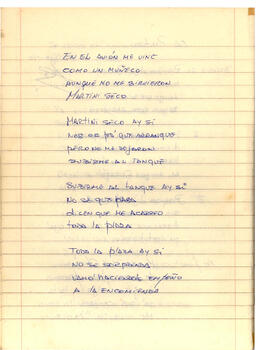 EN EL AVIÓN ME VINE
COMO UN MUÑECO
AUNQUE NO ME SIRVIERON
MARTINI SECO
MARTINI SECO AY SÍ
QUE ARRANQUE
PERO NO ME DEJARON
SUBIRME AL TANQUE
SUBIRME AL TANQUE AY SI
NO SE QUE PASA
DICEN QUE ME ACARREO
TODA LA PLAZA
TODA LA PLAZA AY SÍ
NO SE SORPRENDA
VAMOS HACIENDOLE EMPEÑO
A LA ENCOMIENDA